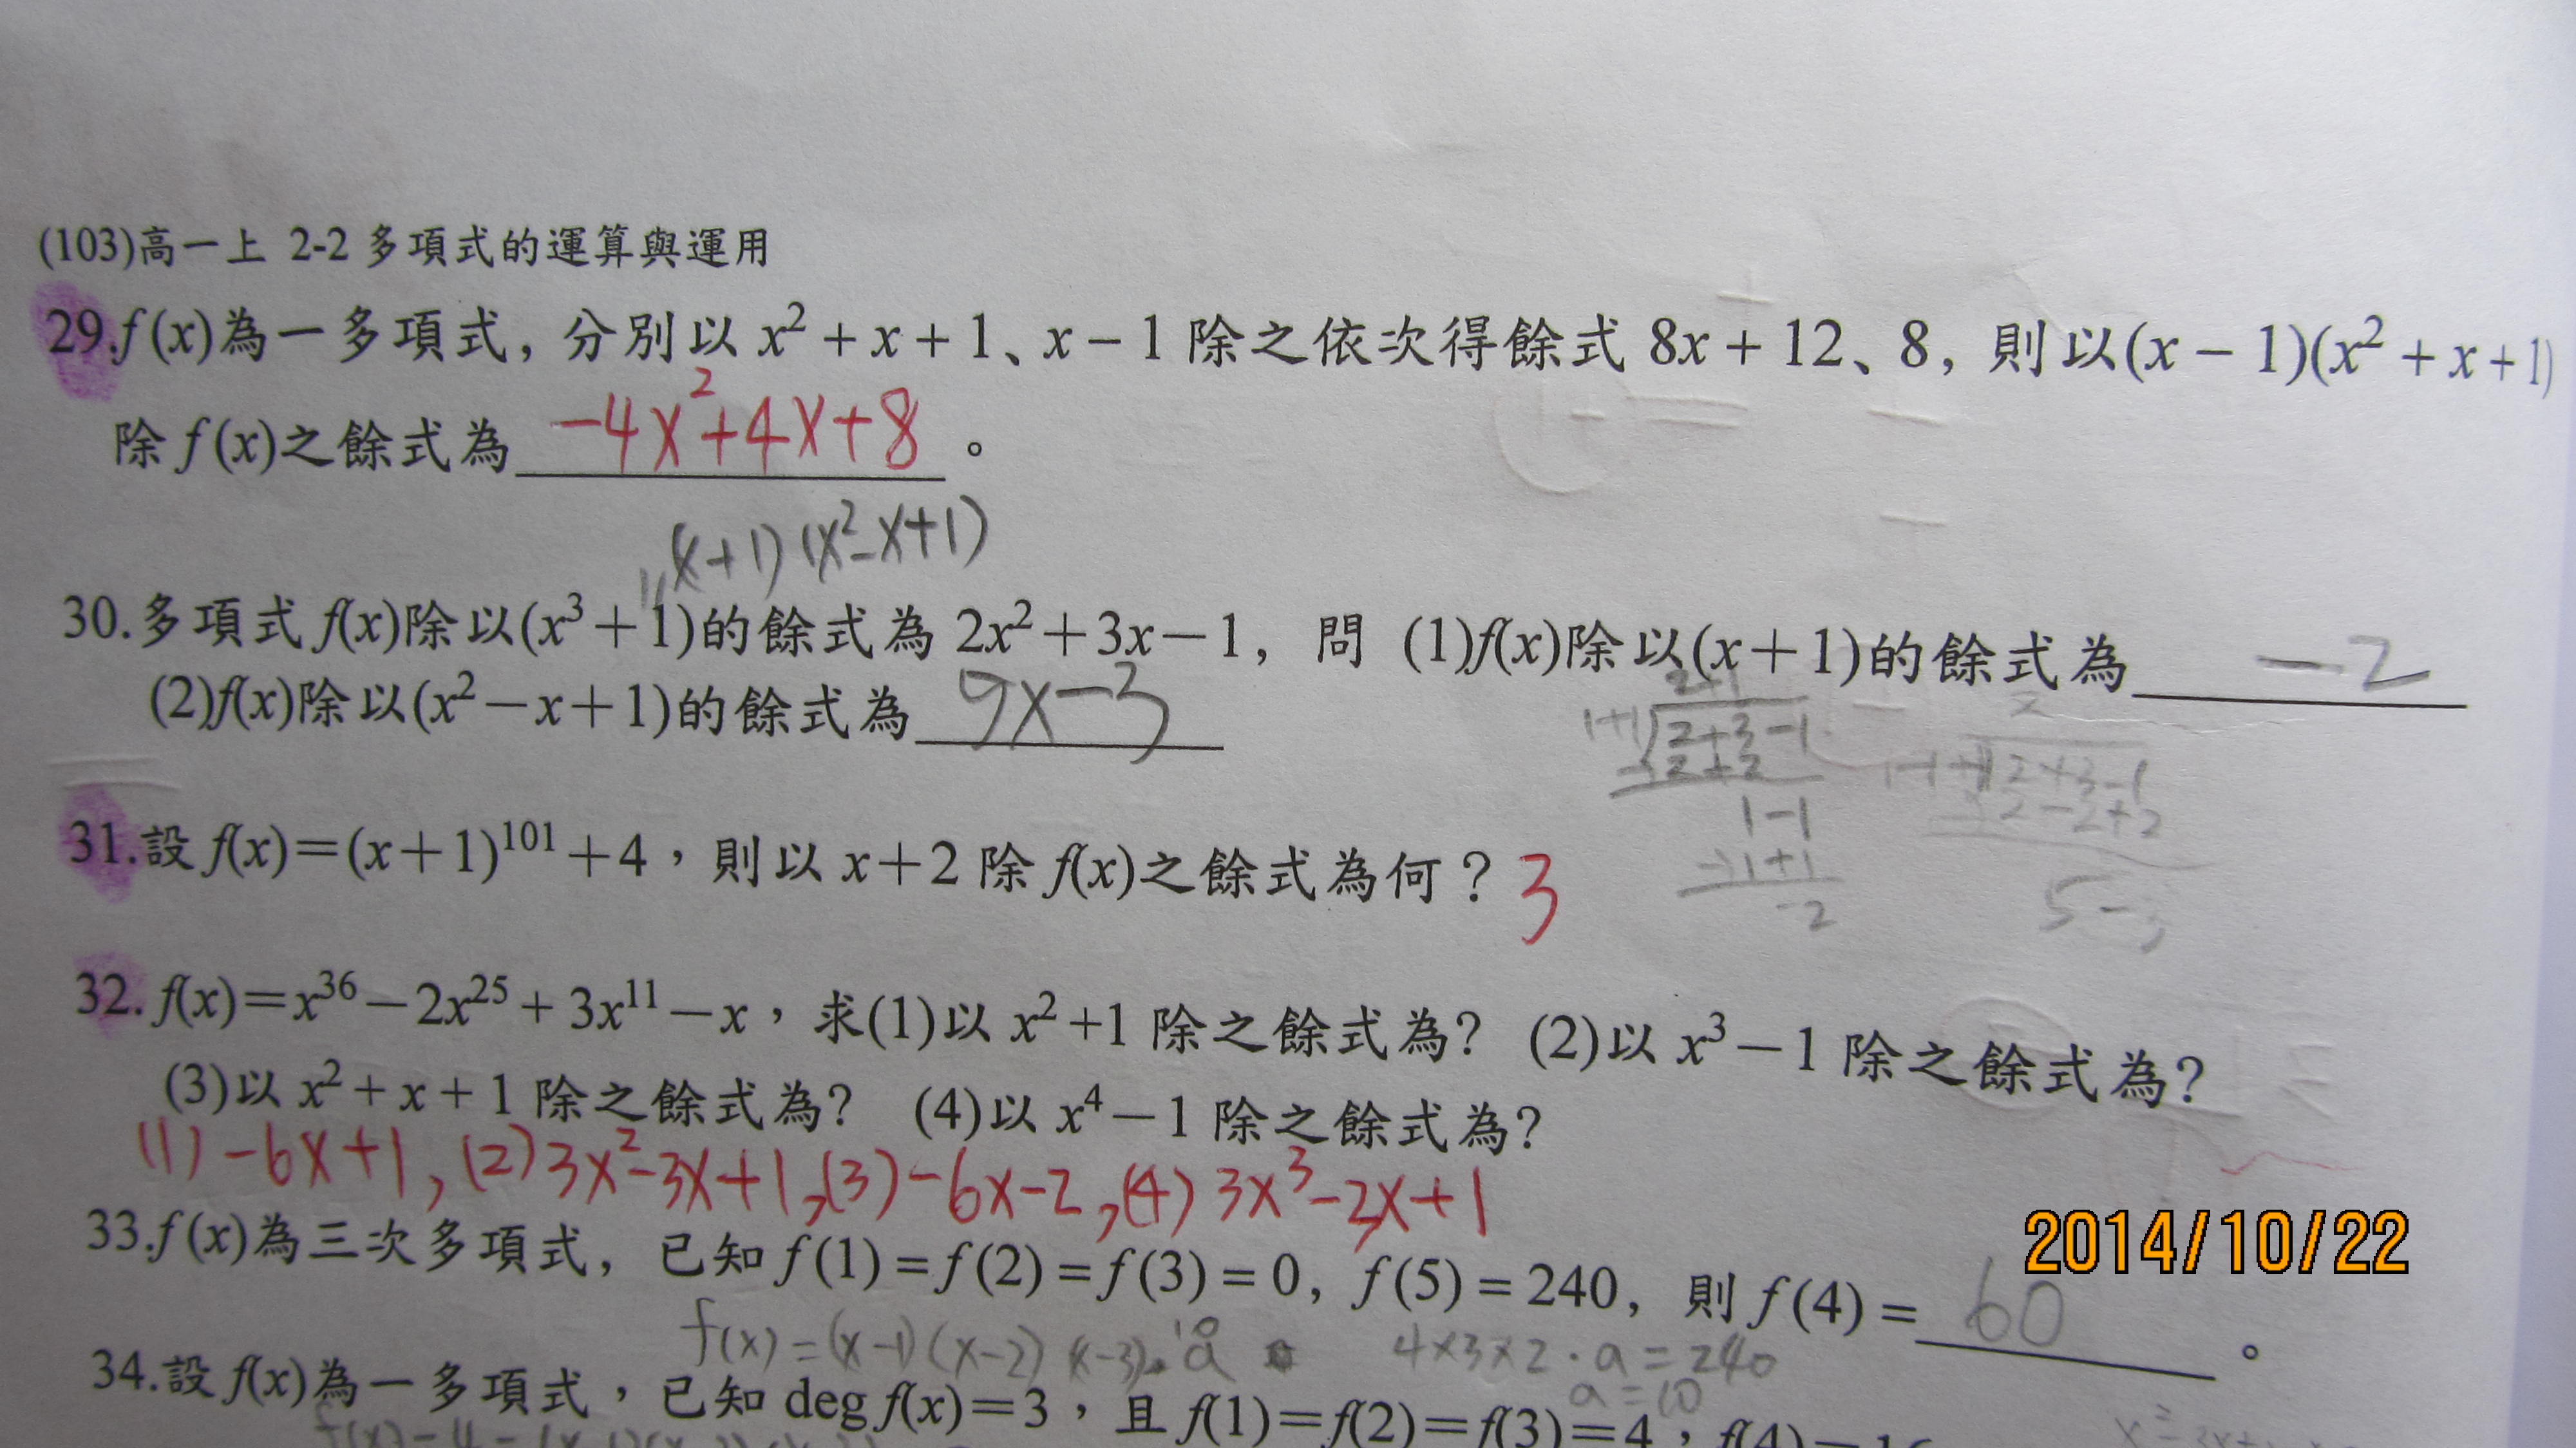 (103)高一上 2-2 多項式的運算與運用
29.f(x)為一多項式, 分別以 x²+x+1、x−1 除之依次得餘式 8x+12、8, 則以(x−1)(x²+x+1)
除 f(x)之餘式為 −4x²+4x+8 。
(x+1)(x²−x+1)
30.多項式 f(x)除以(x³+1)的餘式為 2x²+3x−1, 問 (1)f(x)除以(x+1)的餘式為 −2
(2)f(x)除以(x²−x+1)的餘式為 5x−3
2+1
1+1 2+3−1
2+2
1−1
1+1
−2
2
1−1+1 2+3−1
2−2+2
5−3
31.設 f(x)=(x+1)¹⁰¹+4,則以 x+2 除 f(x)之餘式為何? 3
32.f(x)=x³⁶−2x²⁵+3x¹¹−x,求(1)以 x²+1 除之餘式為? (2)以 x³−1 除之餘式為?
(3)以 x²+x+1 除之餘式為? (4)以 x⁴−1 除之餘式為?
(1) −6x+1, (2) 3x²−3x+1, (3) −6x−2, (4) 3x³−2x+1
2014/10/22
33.f(x)為三次多項式, 已知 f(1)=f(2)=f(3)=0, f(5)=240, 則 f(4)= 60 。
f(x)=(x−1)(x−2)(x−3)·a 10
4×3×2·a=240
a=10
34.設 f(x)為一多項式,已知 deg f(x)=3,且 f(1)=f(2)=f(3)=4,f(4)=16